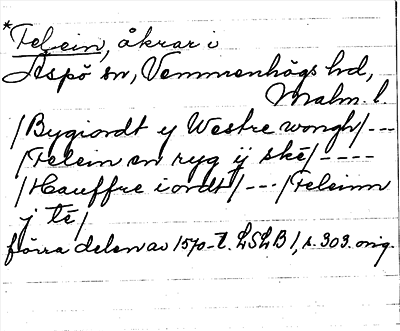 *Felein, åkrar i
Äspö sn, Vemmenhögs hd,
Malm. l.
/Bygiordt y Westre wongh/---
/Felein en ryg ij ské/----
/Hauffre iordt/---/Feleinn
j té/
förra delen av 1570-t. LSLB 1, s. 303. orig.